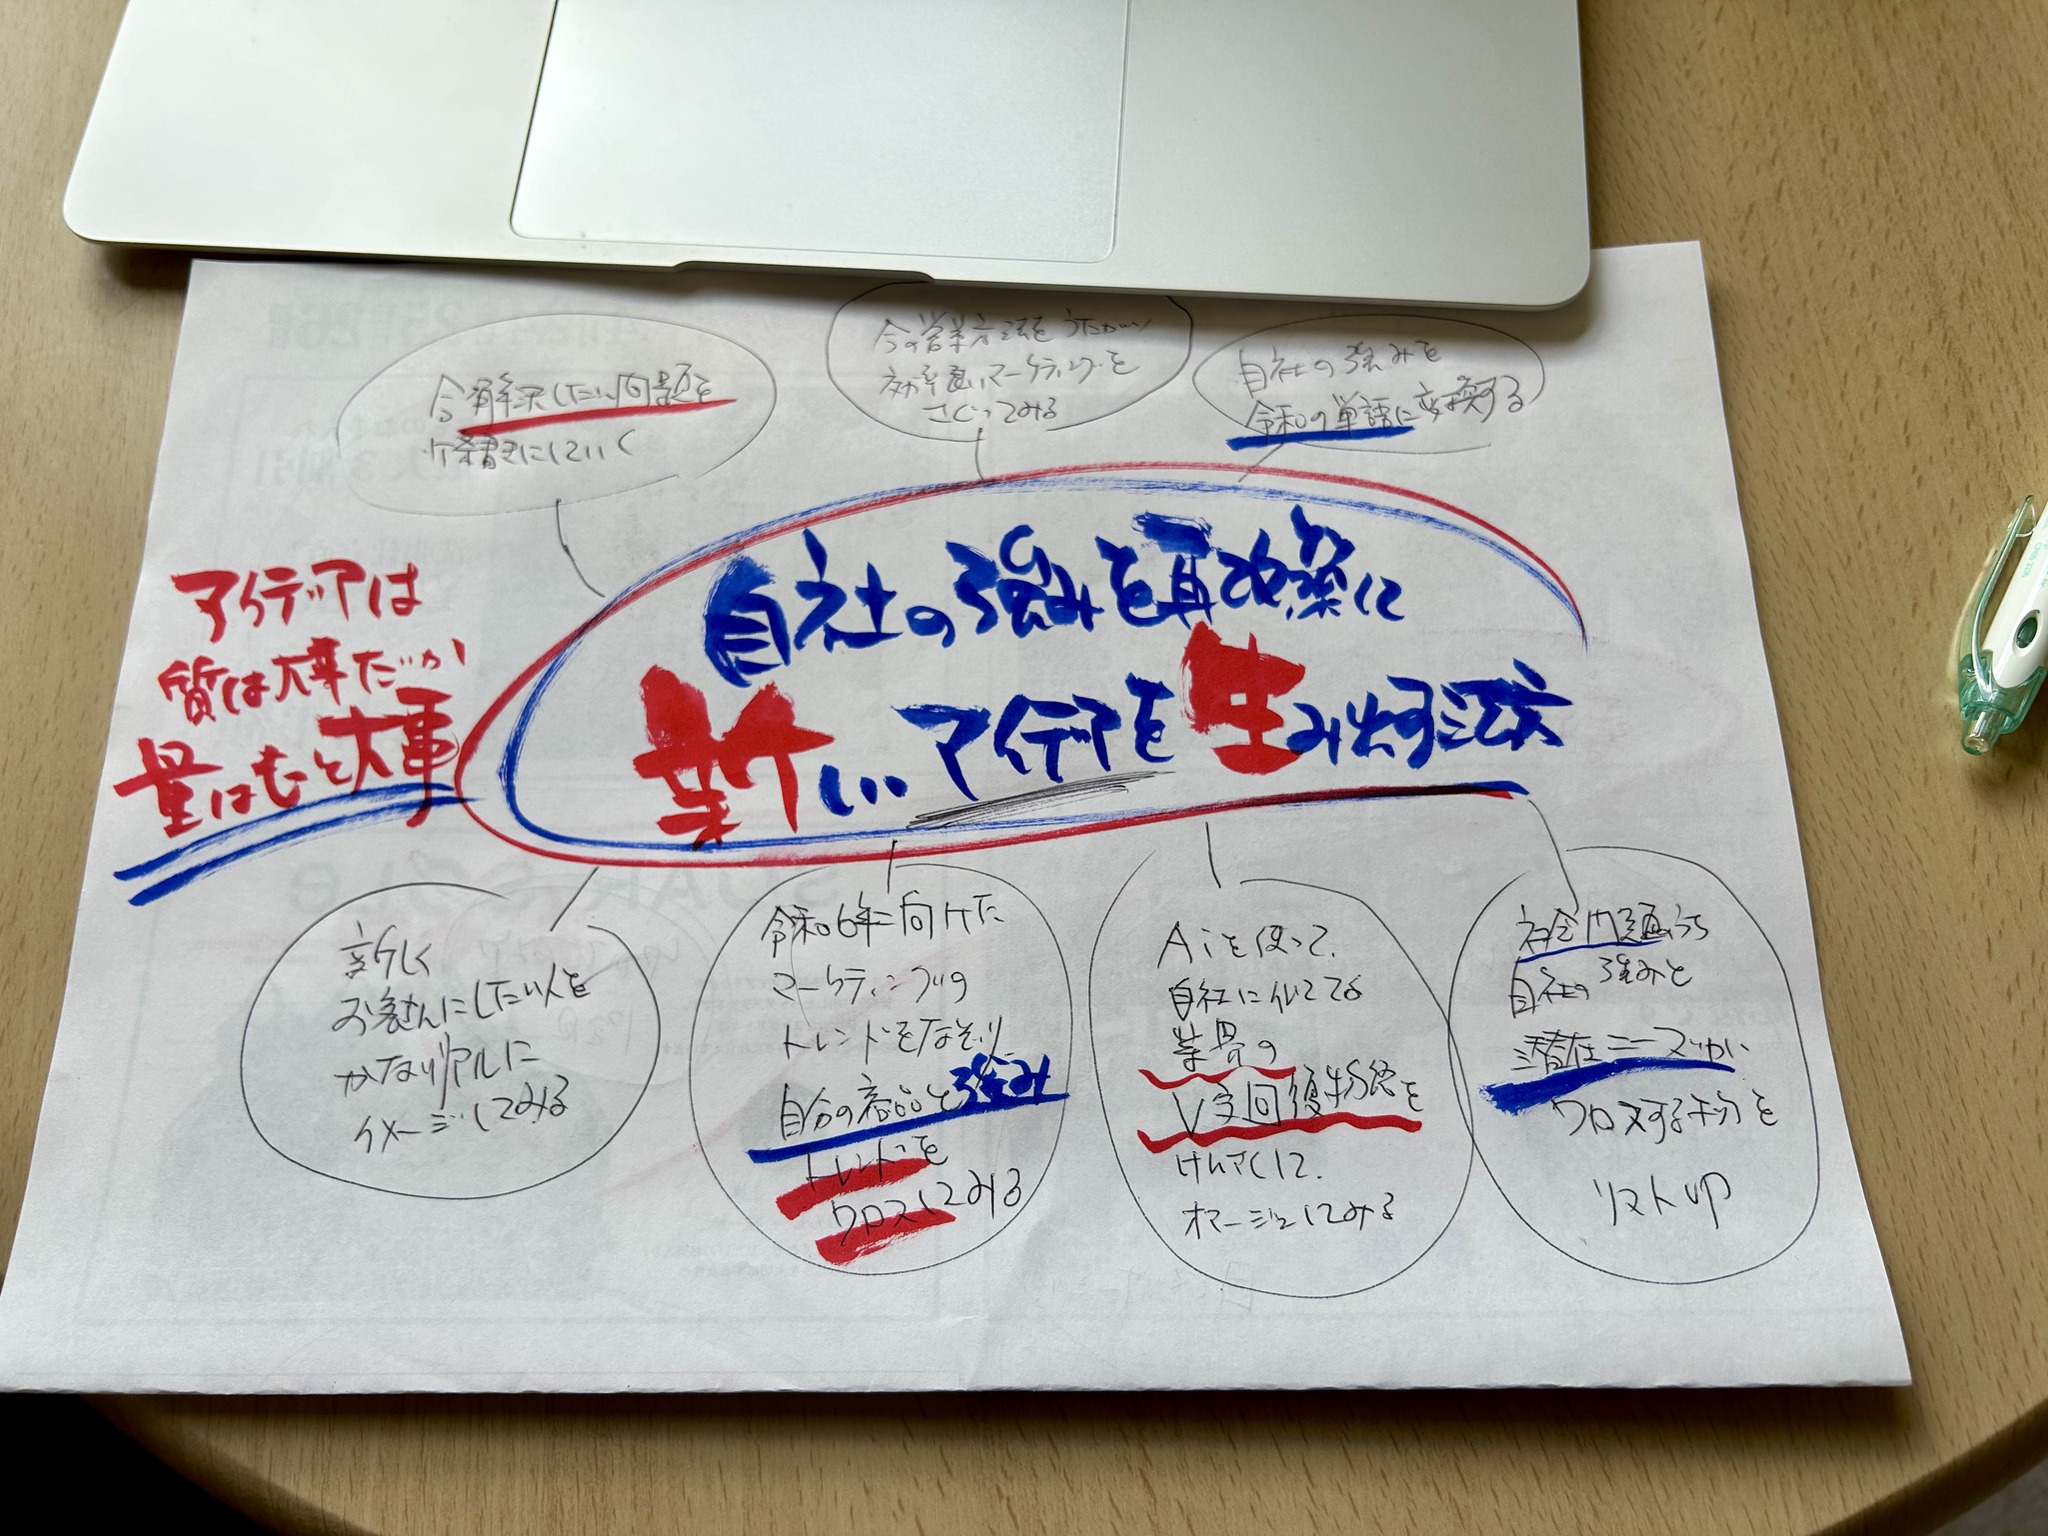 今解決したい問題を
箇条書きにしていく
今の営業方法をうたがい
効率良いマーケティングを
さぐってみる
自社の強みを
令和の単語に変換する
アイデアは
質は大事だが
量はもっと大事
自社の強みを再改築に
新しいアイデアを生み出す法
新しく
お客さんにしたい人を
かなりリアルに
イメージしてみる
令和6年に向けた
マーケティングの
トレンドをなぞり
自分の商品と強み
トレンドを
クロスしてみる
Aiを使って、
自社に似てる
業界の
V字回復物語を
けんさくして、
オマージュしてみる
社会問題から
自社の強みと
潜在ニーズが
クロスする
リストup